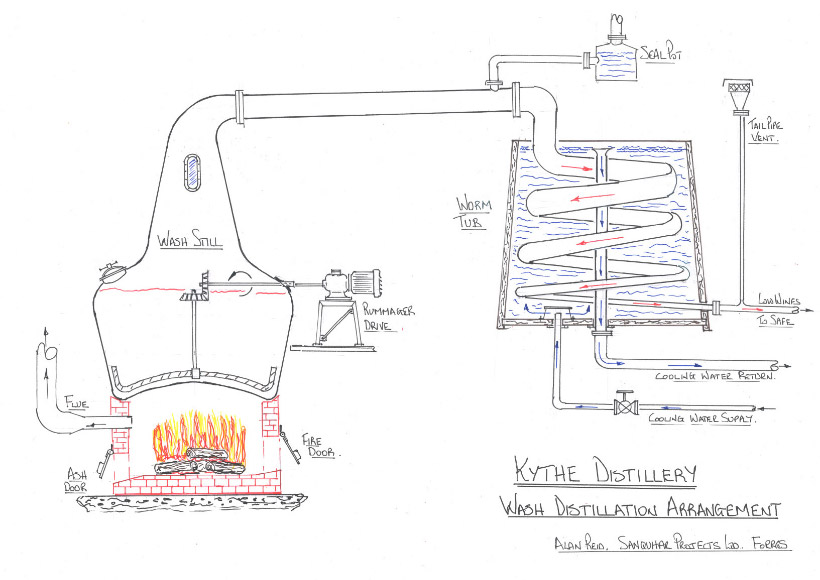 SEAL POT
TAIL PIPE
VENT.
WORM
TUB
WASH STILL
RUMMAGER
DRIVE.
LOW WINES
TO SAFE
COOLING WATER RETURN.
COOLING WATER SUPPLY.
FLUE
FIRE
DOOR.
ASH
DOOR
KYTHE DISTILLERY
WASH DISTILLATION ARRANGEMENT
ALAN REID. SANQUHAR PROJECTS LTD. FORRES